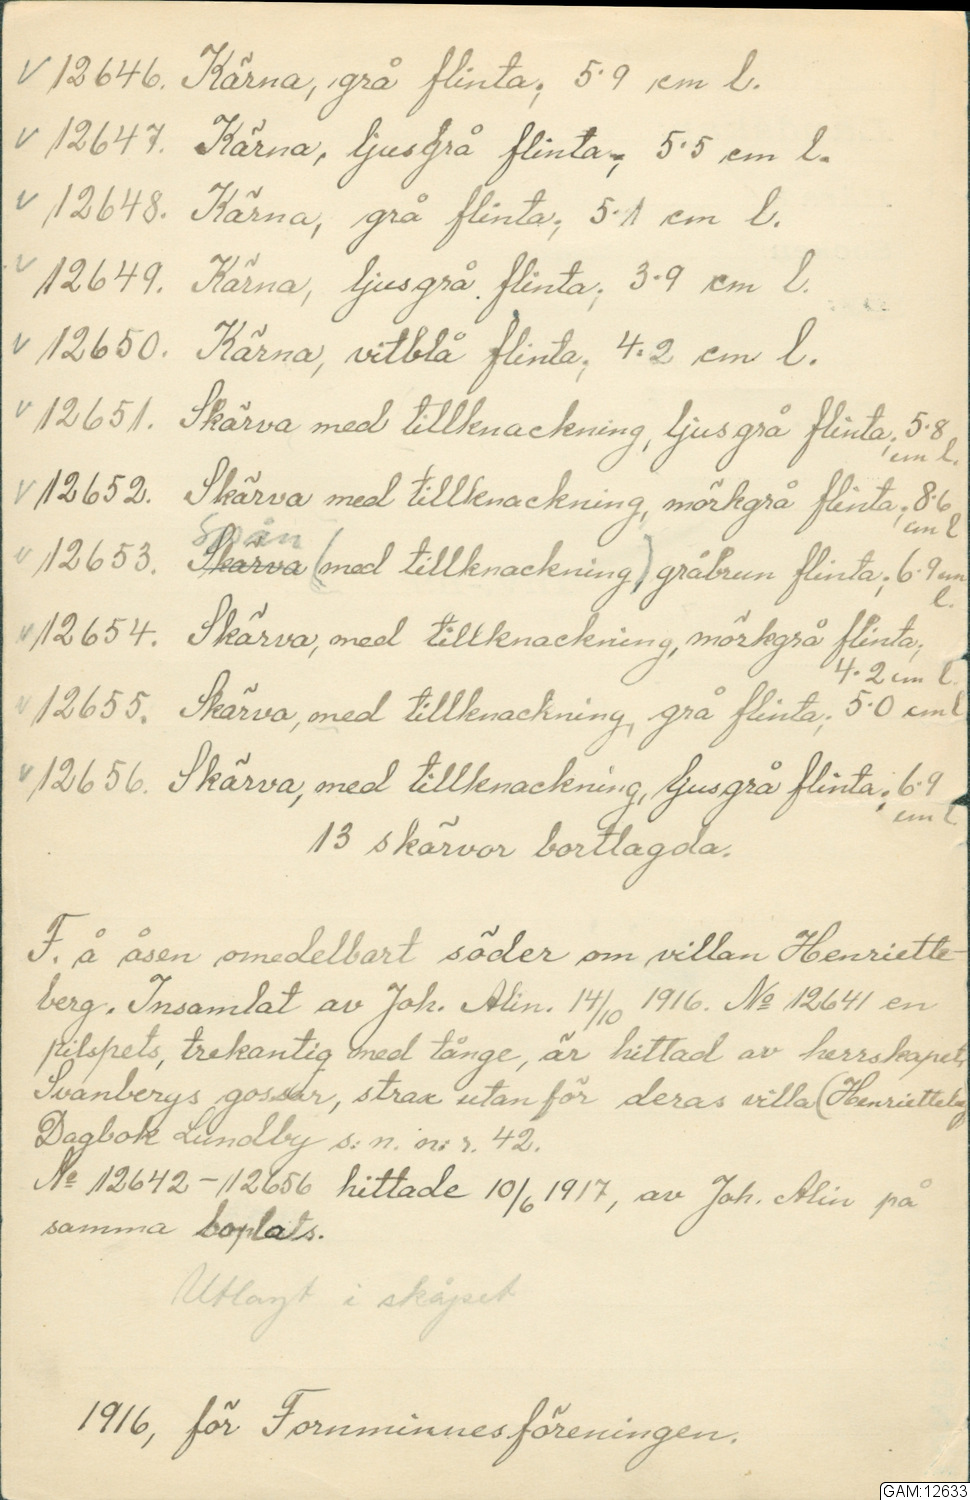 V 12646. Kärna, grå flinta; 5.9 cm l.
V 12647. Kärna, ljusgrå flinta; 5.5 cm l.
V 12648. Kärna, grå flinta; 5.1 cm l.
V 12649. Kärna, ljusgrå flinta; 3.9 cm l.
V 12650. Kärna, vitblå flinta; 4.2 cm l.
V 12651. Skärva med tillknackning, ljusgrå flinta; 5.8
cm l.
V 12652. Skärva med tillknackning, mörkgrå flinta; 8.6
cm l
Spån
V 12653. Skärva (med tillknackning) gråbrun flinta; 6.9 cm
l.
V 12654. Skärva, med tillknackning, mörkgrå flinta;
4.2 cm l.
V 12655. Skärva, med tillknackning, grå flinta; 5.0 cm l
V 12656. Skärva, med tillknackning, ljusgrå flinta; 6.9
cm l
13 skärvor bortlagda.
F. å åsen omedelbart söder om villan Henriette-
berg. Insamlat av Joh. Alin. 14/10 1916. No 12641 en
pilspets, trekantig med tånge, är hittad av herrskapet
Svanbergs gossar, strax utanför deras villa (Henrietteberg
Dagbok Lundby s:n. n:r. 42.
No 12642-12656 hittade 10/6 1917, av Joh. Alin på
samma boplats.
Utlagt i skåpet
1916, för Fornminnesföreningen.
GAM:12633